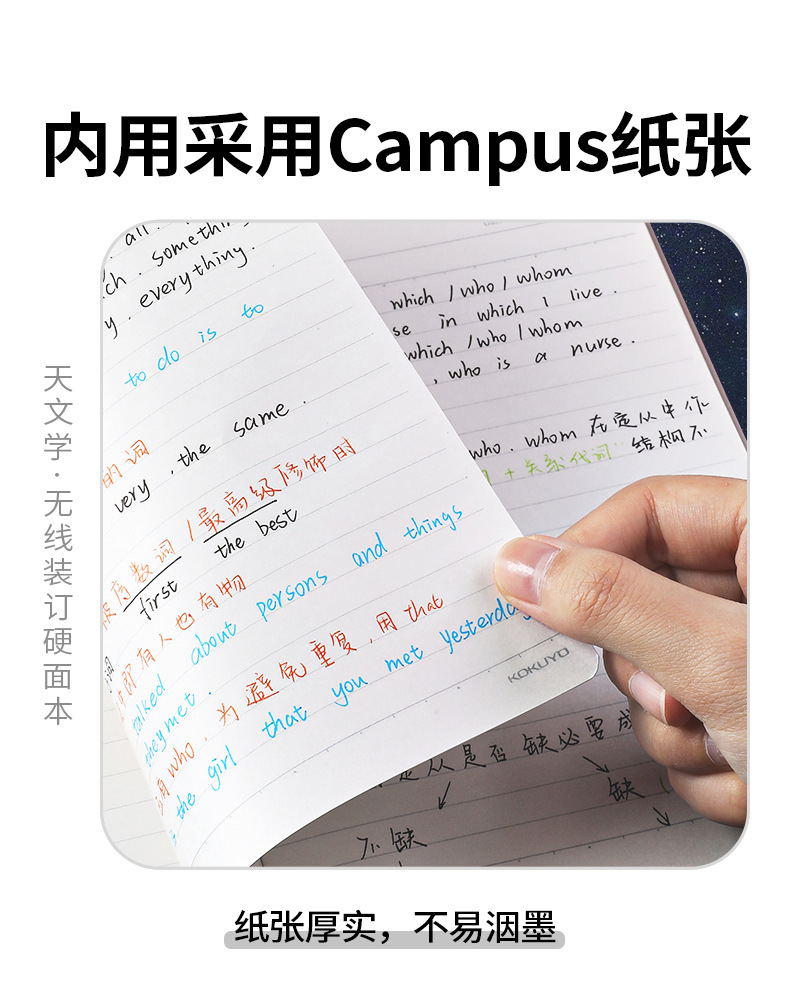 内用采用Campus纸张
天文学·无线装订硬面本
all.
ch. somethin
y. everything.
to do is to
的词
very , the same .
/最高级修饰时
序数词
first the best
即有人也有物
talked about persons and things
they met .
有who, 为避免重复, 用that
the girl that you met yesterday
KOKUYO
which / who / whom
se in which I live .
which / who / whom
, who is a nurse .
who . whom 在定从中作
+ 关系代词" 结构不
定从是否缺必要成
缺
不缺
纸张厚实，不易洇墨